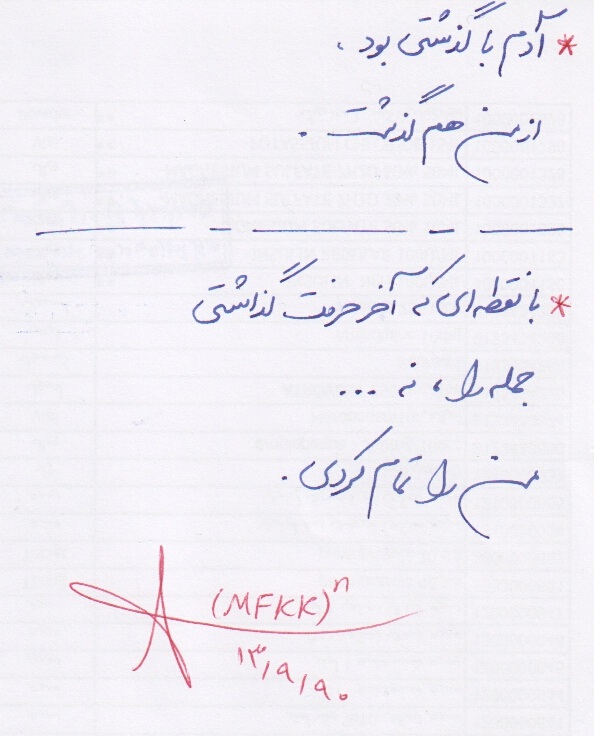 * آدم با گذشتی بود،
از من هم گذشت.
* با نقطه‌ای که آخر حرفت گذاشتی
جمله را، نه ...
من را تمام کردی.
(MFKK)ⁿ
۱۳/۹/۹۰